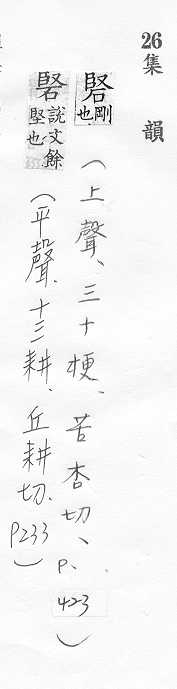 26集韻
硻剛也（上聲、三十梗、苦杏切、P、423）
硻說文餘堅也（平聲、十三耕、丘耕切、P233）